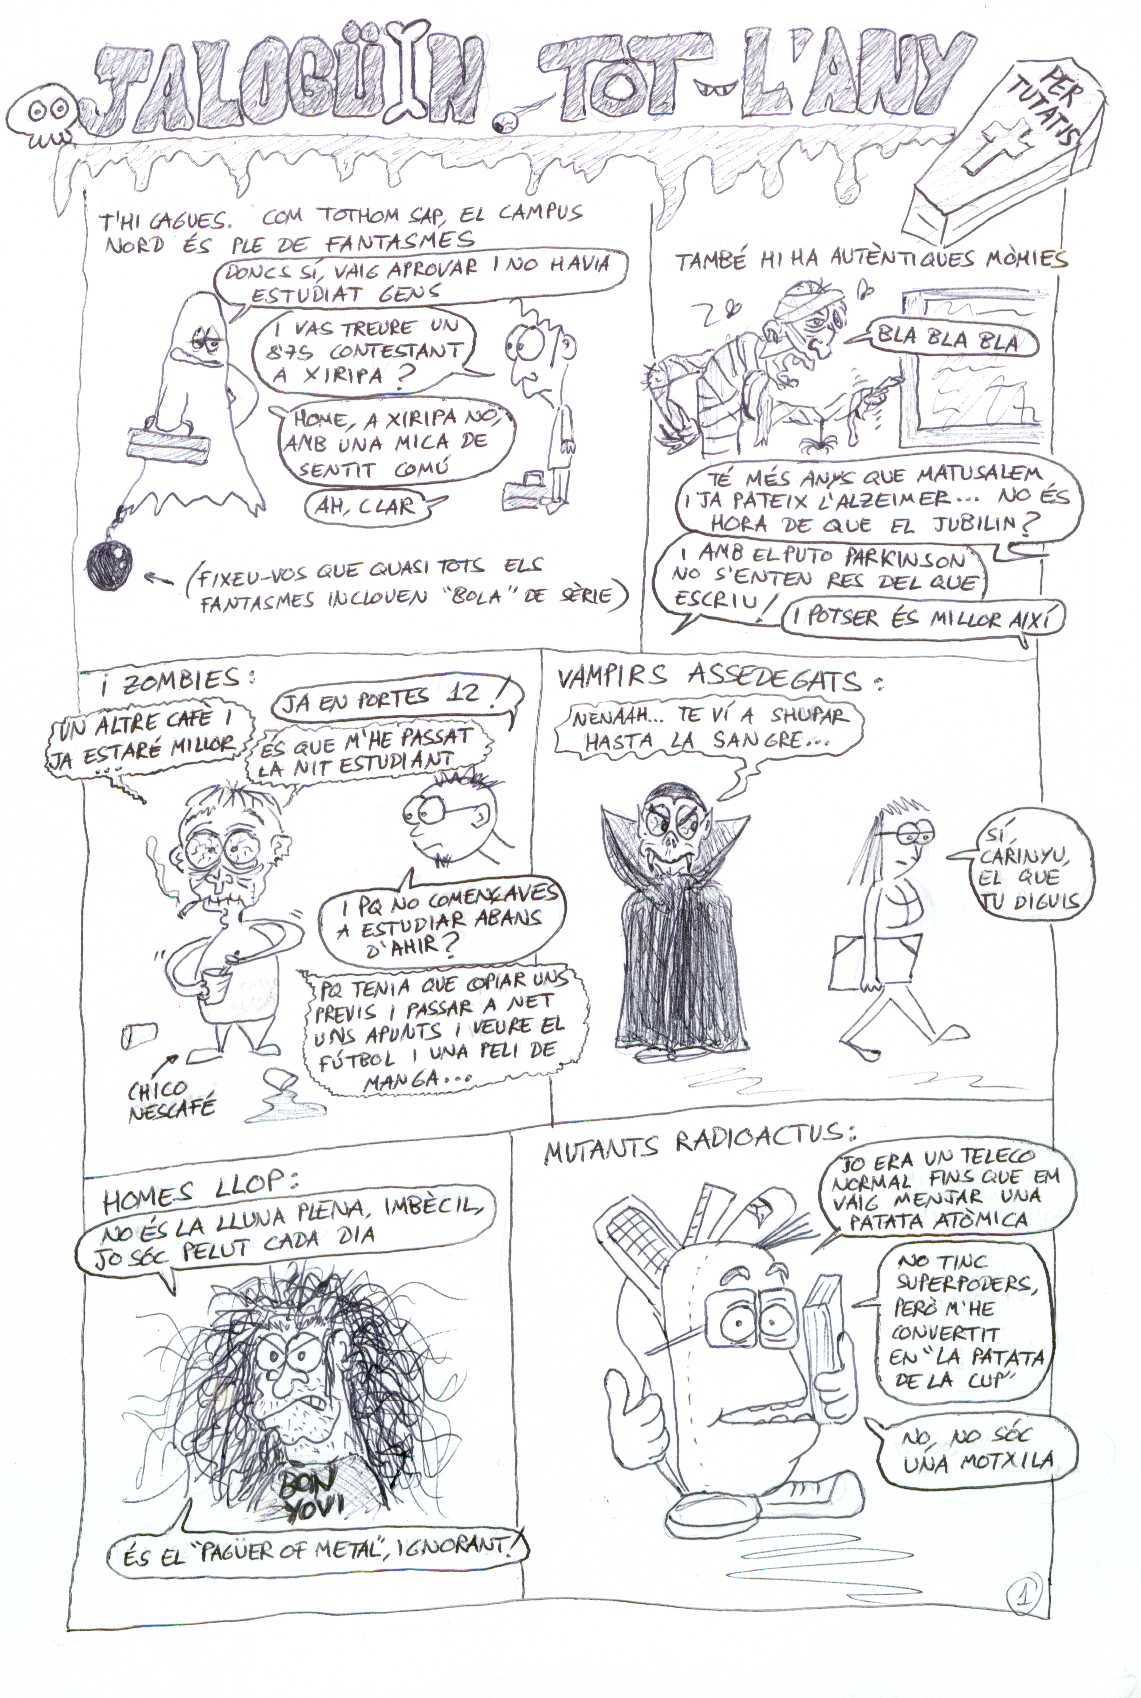 JALOGÜIN TOT L'ANY
PER
TUTATIS
T'HI CAGUES. COM TOTHOM SAP, EL CAMPUS
NORD ÉS PLE DE FANTASMES
DONCS SÍ, VAIG APROVAR I NO HAVIA
ESTUDIAT GENS
I VAS TREURE UN
8'75 CONTESTANT
A XIRIPA?
HOME, A XIRIPA NO,
AMB UNA MICA DE
SENTIT COMÚ
AH, CLAR
(FIXEU-VOS QUE QUASI TOTS ELS
FANTASMES INCLOUEN "BOLA" DE SÈRIE)
TAMBÉ HI HA AUTÈNTIQUES MÒMIES
BLA BLA BLA
TÉ MÉS ANYS QUE MATUSALEM
I JA PATEIX L'ALZEIMER... NO ÉS
HORA DE QUE EL JUBILIN?
I AMB EL PUTO PARKINSON
NO S'ENTEN RES DEL QUE
ESCRIU!
I POTSER ÉS MILLOR AIXÍ
I ZOMBIES:
UN ALTRE CAFÈ I
JA ESTARÉ MILLOR
...
JA EN PORTES 12!
ÉS QUE M'HE PASSAT
LA NIT ESTUDIANT
I PQ NO COMENÇAVES
A ESTUDIAR ABANS
D'AHIR?
PQ TENIA QUE COPIAR UNS
PREVIS I PASSAR A NET
UNS APUNTS I VEURE EL
FÚTBOL I UNA PELI DE
MANGA...
CHICO
NESCAFÉ
VAMPIRS ASSEDEGATS:
NENAAH... TE VÍ A SHUPAR
HASTA LA SANGRE...
SÍ,
CARINYU,
EL QUE
TU DIGUIS
HOMES LLOP:
NO ÉS LA LLUNA PLENA, IMBÈCIL,
JO SÓC PELUT CADA DIA
BON
YOVI
ÉS EL "PAGÜER OF METAL", IGNORANT!
MUTANTS RADIOACTUS:
JO ERA UN TELECO
NORMAL FINS QUE EM
VAIG MENJAR UNA
PATATA ATÒMICA
NO TINC
SUPERPODERS,
PERÒ M'HE
CONVERTIT
EN "LA PATATA
DE LA CUP"
NO, NO SÓC
UNA MOTXILA
1